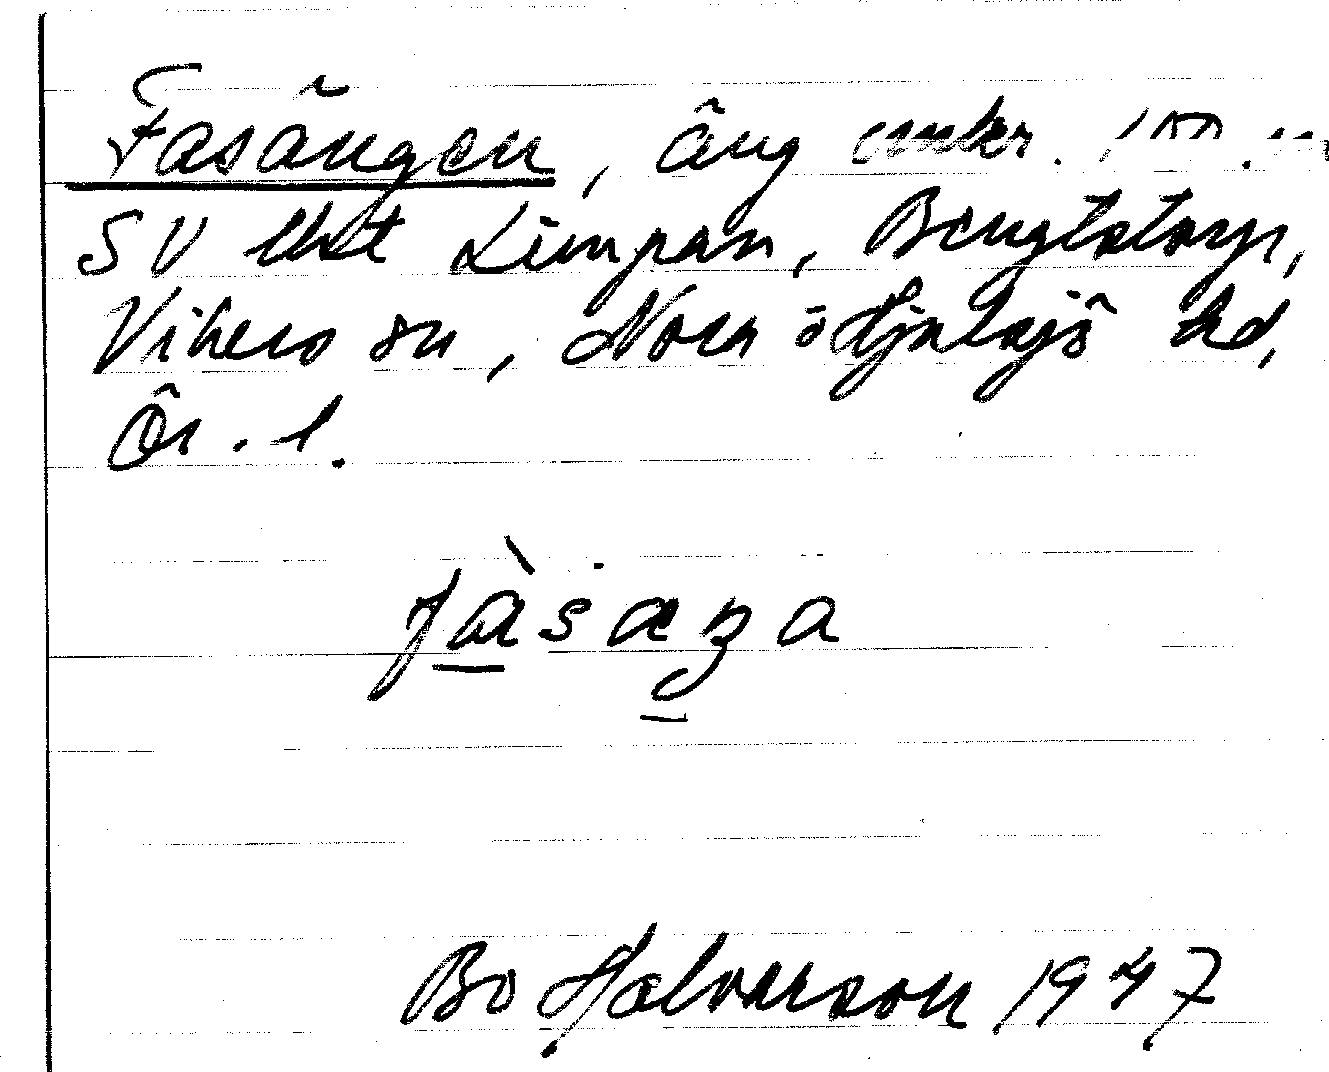 Fasängen, äng omkr. 100 m
SV lht Limpan, Bengtstorp,
Vikers sn, Nora o Hjulsjö hd,
Ör. l.
fàsæŋa
Bo Halvarson 1947